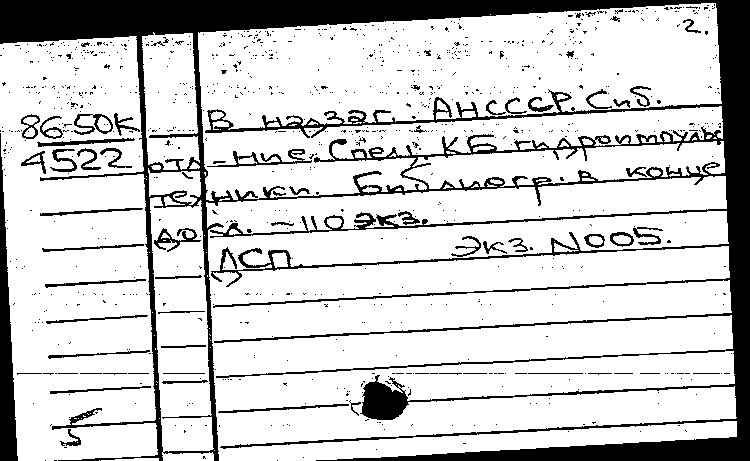 2.
86-50К В надзаг.: АНСССР. Сиб.
4522 отд-ние. Спец. КБ гидроимпульс
техники. Библиогр. в конце
докл. - 110 экз.
ДСП Экз. N005.
5